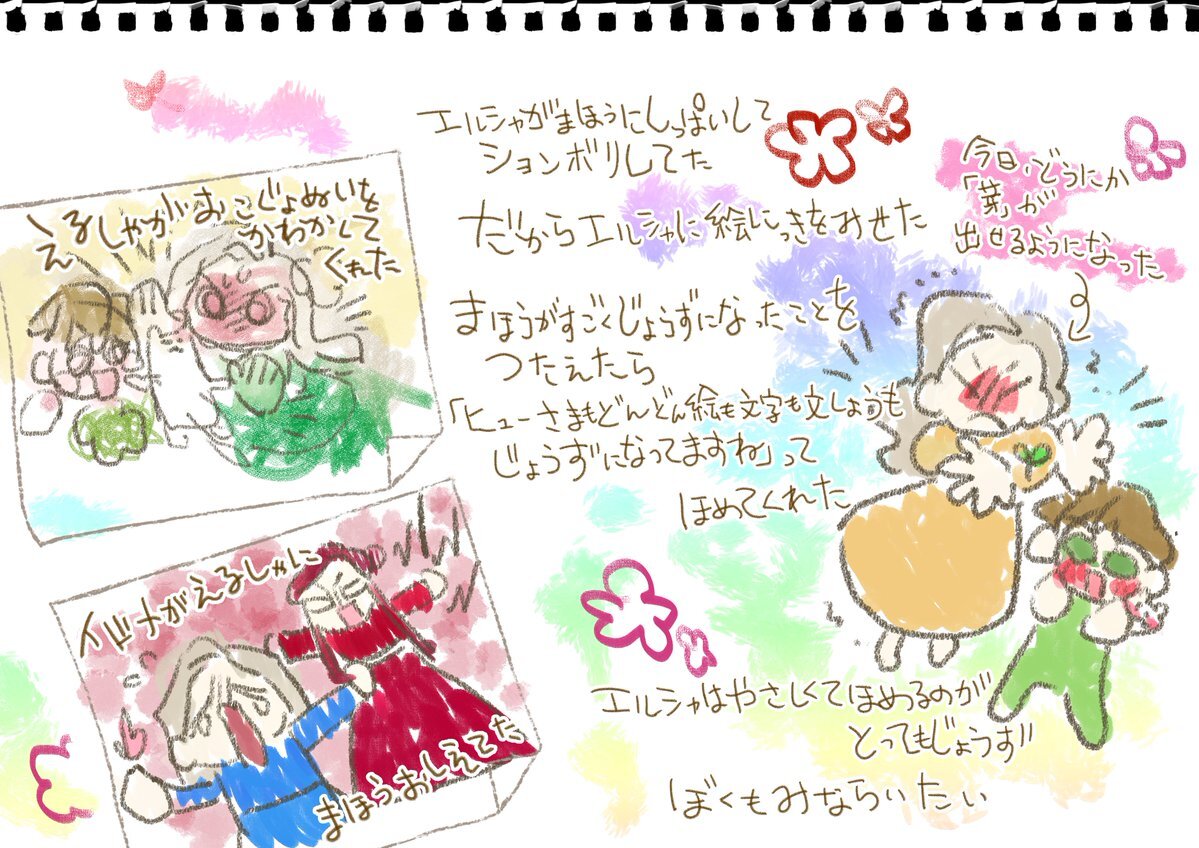 エルシャがまほうにしっぱいして
ションボリしてた
だからエルシャに絵にっきをみせた
まほうがすごくじょうずになったことを
つたえたら
「ヒューさまもどんどん絵も文字も文しょうも
じょうずになってますね」って
ほめてくれた
エルシャはやさしくてほめるのが
とってもじょうず!!
ぼくもみならいたい
今日、どうにか
「芽」が
出せるようになった
えるしゃがおこじょぬいを
かわかして
くれた
イドナがえるしゃに
まほうおしえてた